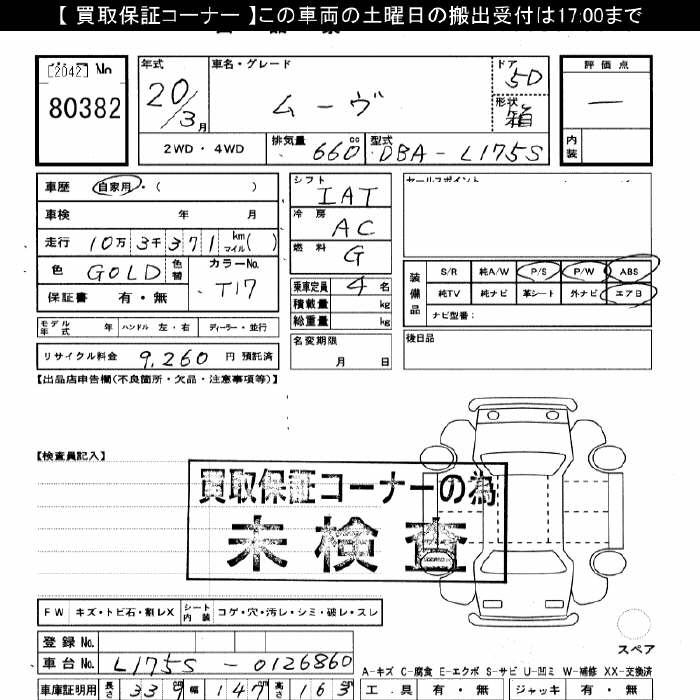 【 買取保証コーナー 】この車両の土曜日の搬出受付は17:00まで
[2042] No
80382
年式
20/3月
車名・グレード
ムーヴ
ドア
5D
形状
箱
評価点
—
内装
2WD・4WD
排気量 660 cc
型式 DBA-L175S
車歴 自家用・( )
車検 年 月
走行 10万3千371 km マイル( )
色 GOLD 色替
カラーNo. T17
保証書 有・無
シフト
IAT
冷房
AC
燃料
G
乗車定員 4 名
積載量 kg
総重量 kg
セールスポイント
装備品
S/R 純A/W P/S P/W ABS
純TV 純ナビ 革シート 外ナビ エアB
ナビ型番:
モデル年式 年 ハンドル 左・右 ディーラー・並行
名変期限
月 日
後日品
リサイクル料金 9,260 円 預託済
【出品店申告欄(不良箇所・欠品・注意事項等)】
【検査員記入】
買取保証コーナーの為
未検査
FW キズ・トビ石・割レX シート内装 コゲ・穴・汚レ・シミ・破レ・スレ
登録 No.
車台 No. L175S-0126860
スペア
A-キズ C-腐食 E-エクボ S-サビ U-凹ミ W-補修 XX-交換済
車庫証明用 長さ 339 幅 147 高さ 163
工具 有・無 ジャッキ 有・無